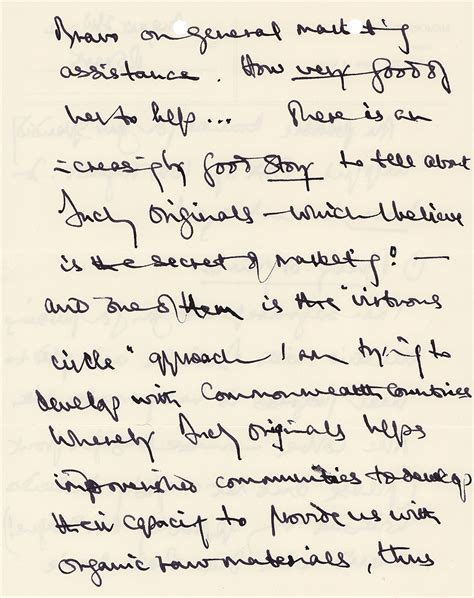 Bravo on general marketing
assistance. How very good of
her to help... There is an
increasingly good story to tell about
Duchy Originals – which I believe
is the secret of marketing! –
and one of them is the "virtuous
circle" approach I am trying to
develop with Commonwealth Countries
whereby Duchy Originals helps
impoverished communities to develop
their capacity to provide us with
organic raw materials, thus